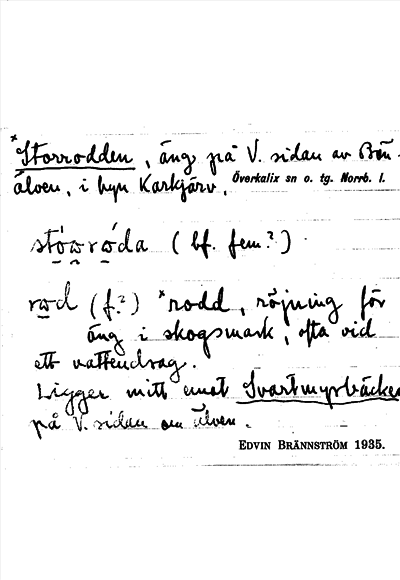 *Storrodden, äng på V. sidan av Bön-
älven, i byn Karkjärv. Överkalix sn o. tg. Norrb. l.
stó̰ω̰rώda (bf. fem?).
rω̱d (f.?) *rodd, röjning för
äng i skogsmark, ofta vid
ett vattendrag.
Ligger mitt emot Svartmyrbäcken
på V. sidan om älven.
EDVIN BRÄNNSTRÖM 1935.